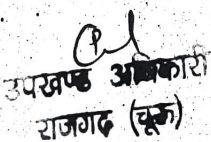 उपखण्ड अधिकारी
राजगढ (चूरू)